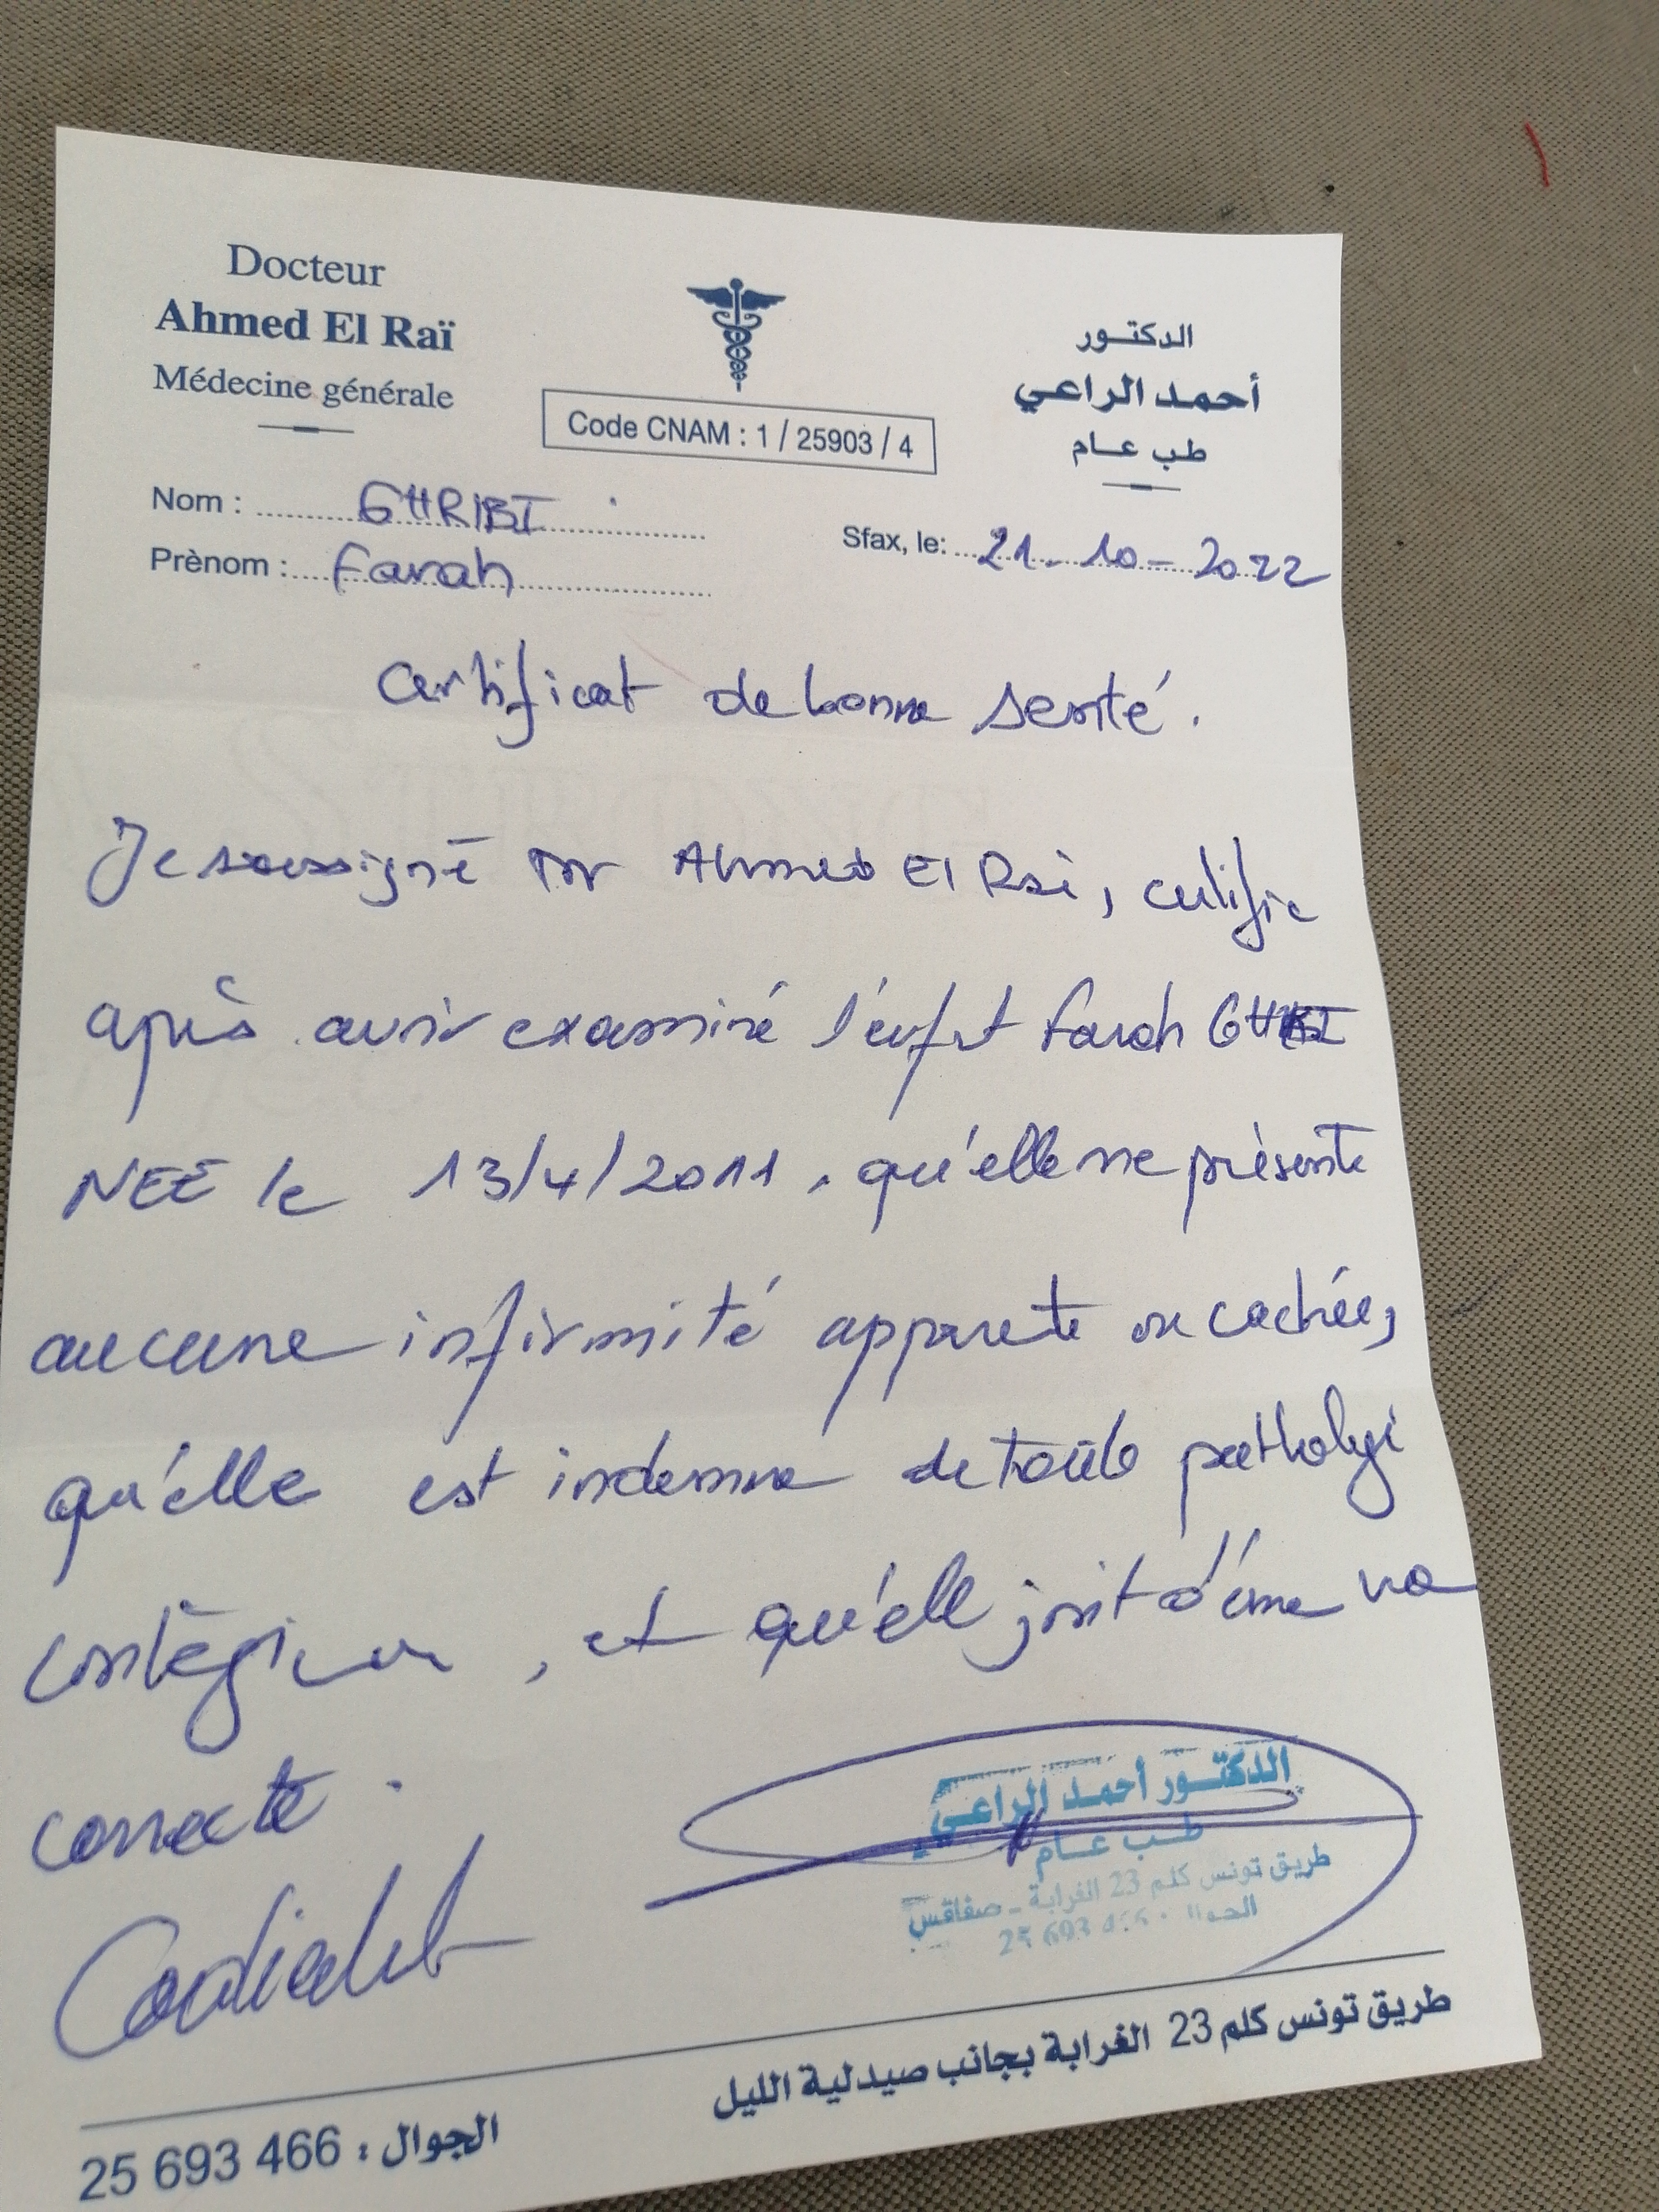 Docteur
Ahmed El Raï
Médecine générale
Code CNAM : 1 / 25903 / 4
الدكتور
أحمد الراعي
طب عام
Nom : GHRIBI
Prènom : Farah
Sfax, le: 21-10-2022
Certificat de bonne santé.
Je soussigné Dr Ahmed El Rai, certifie
après avoir examiné l'enfant Farah
NEE le 13/4/2011, qu'elle ne présente
aucune infirmité apparente ou cachée,
qu'elle est indemne de toute pathologie
contagieuse, et qu'elle jouit d'une
correcte.
الدكتور أحمد الراعي
طب عام
طريق تونس كلم 23 الغرابة - صفاقس
الجوال : 25 693 466
طريق تونس كلم 23 الغرابة بجانب صيدلية الليل
الجوال : 25 693 466